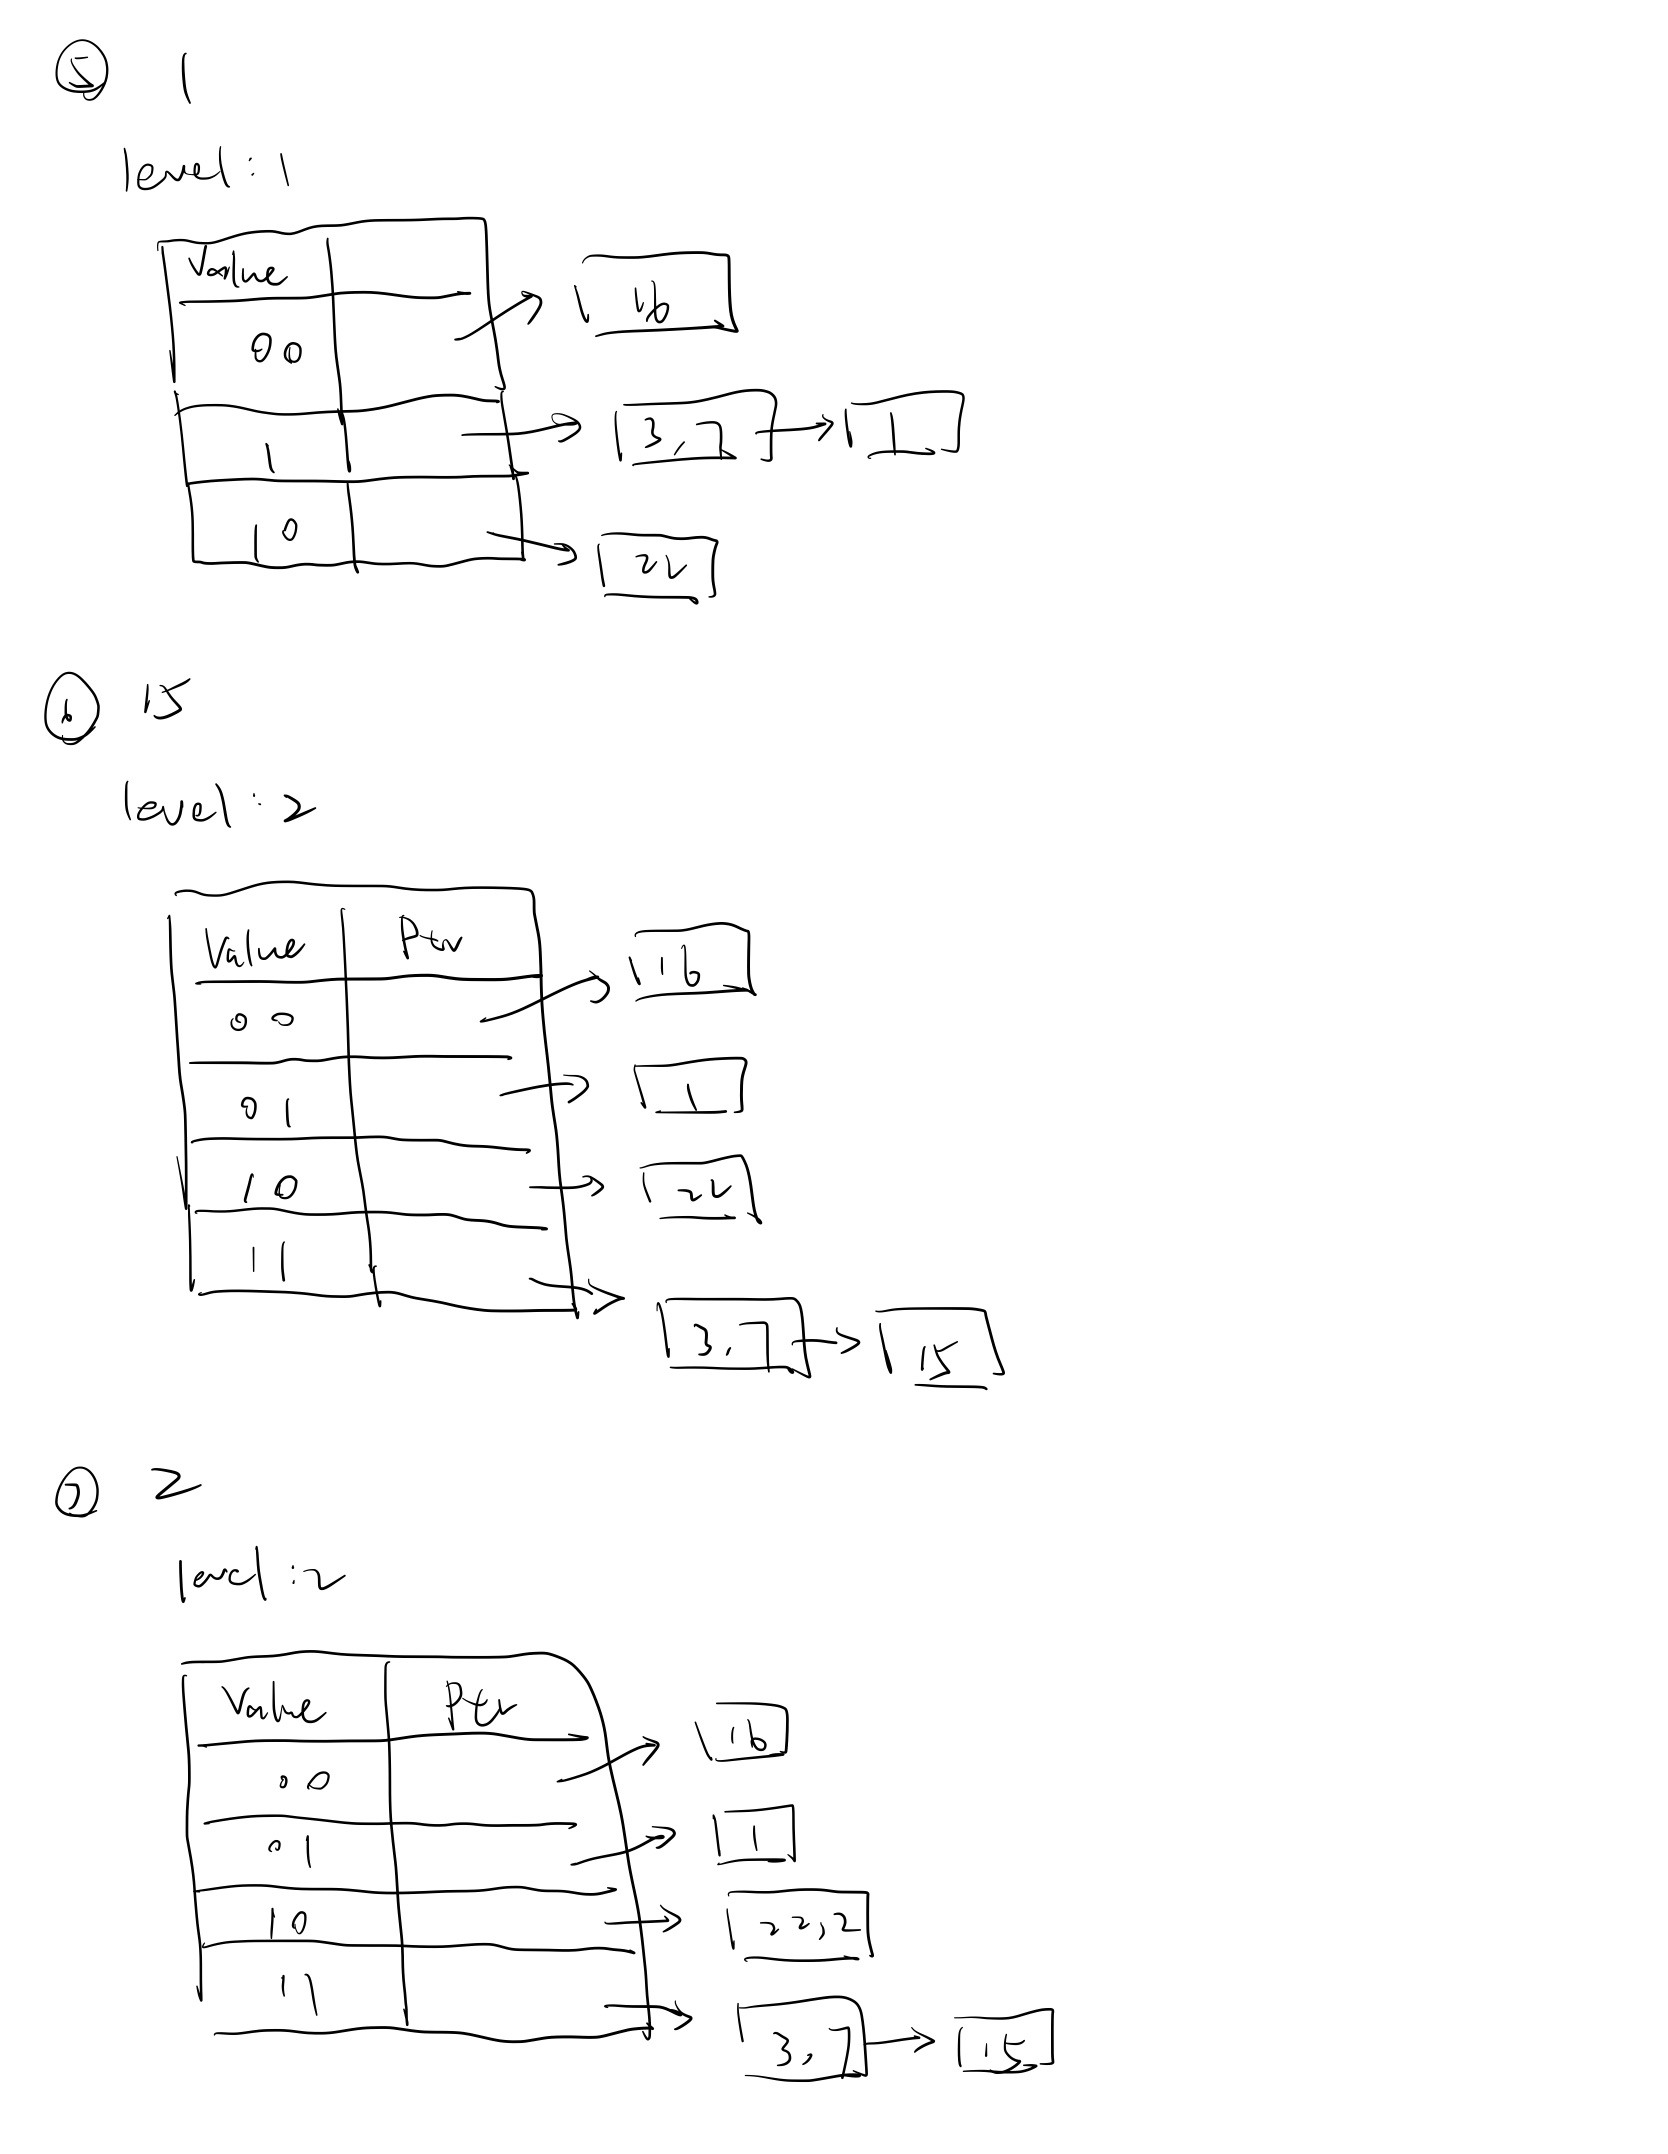 ⑤ 1
level: 1
Value
00 → 16
1 → 3, 7 → 1
10 → 22
⑥ 15
level: 2
Value Ptr
00 → 16
01 → 1
10 → 22
11 → 3, 7 → 15
⑦ 2
level: 2
Value Ptr
00 → 16
01 → 1
10 → 22, 2
11 → 3, 7 → 15